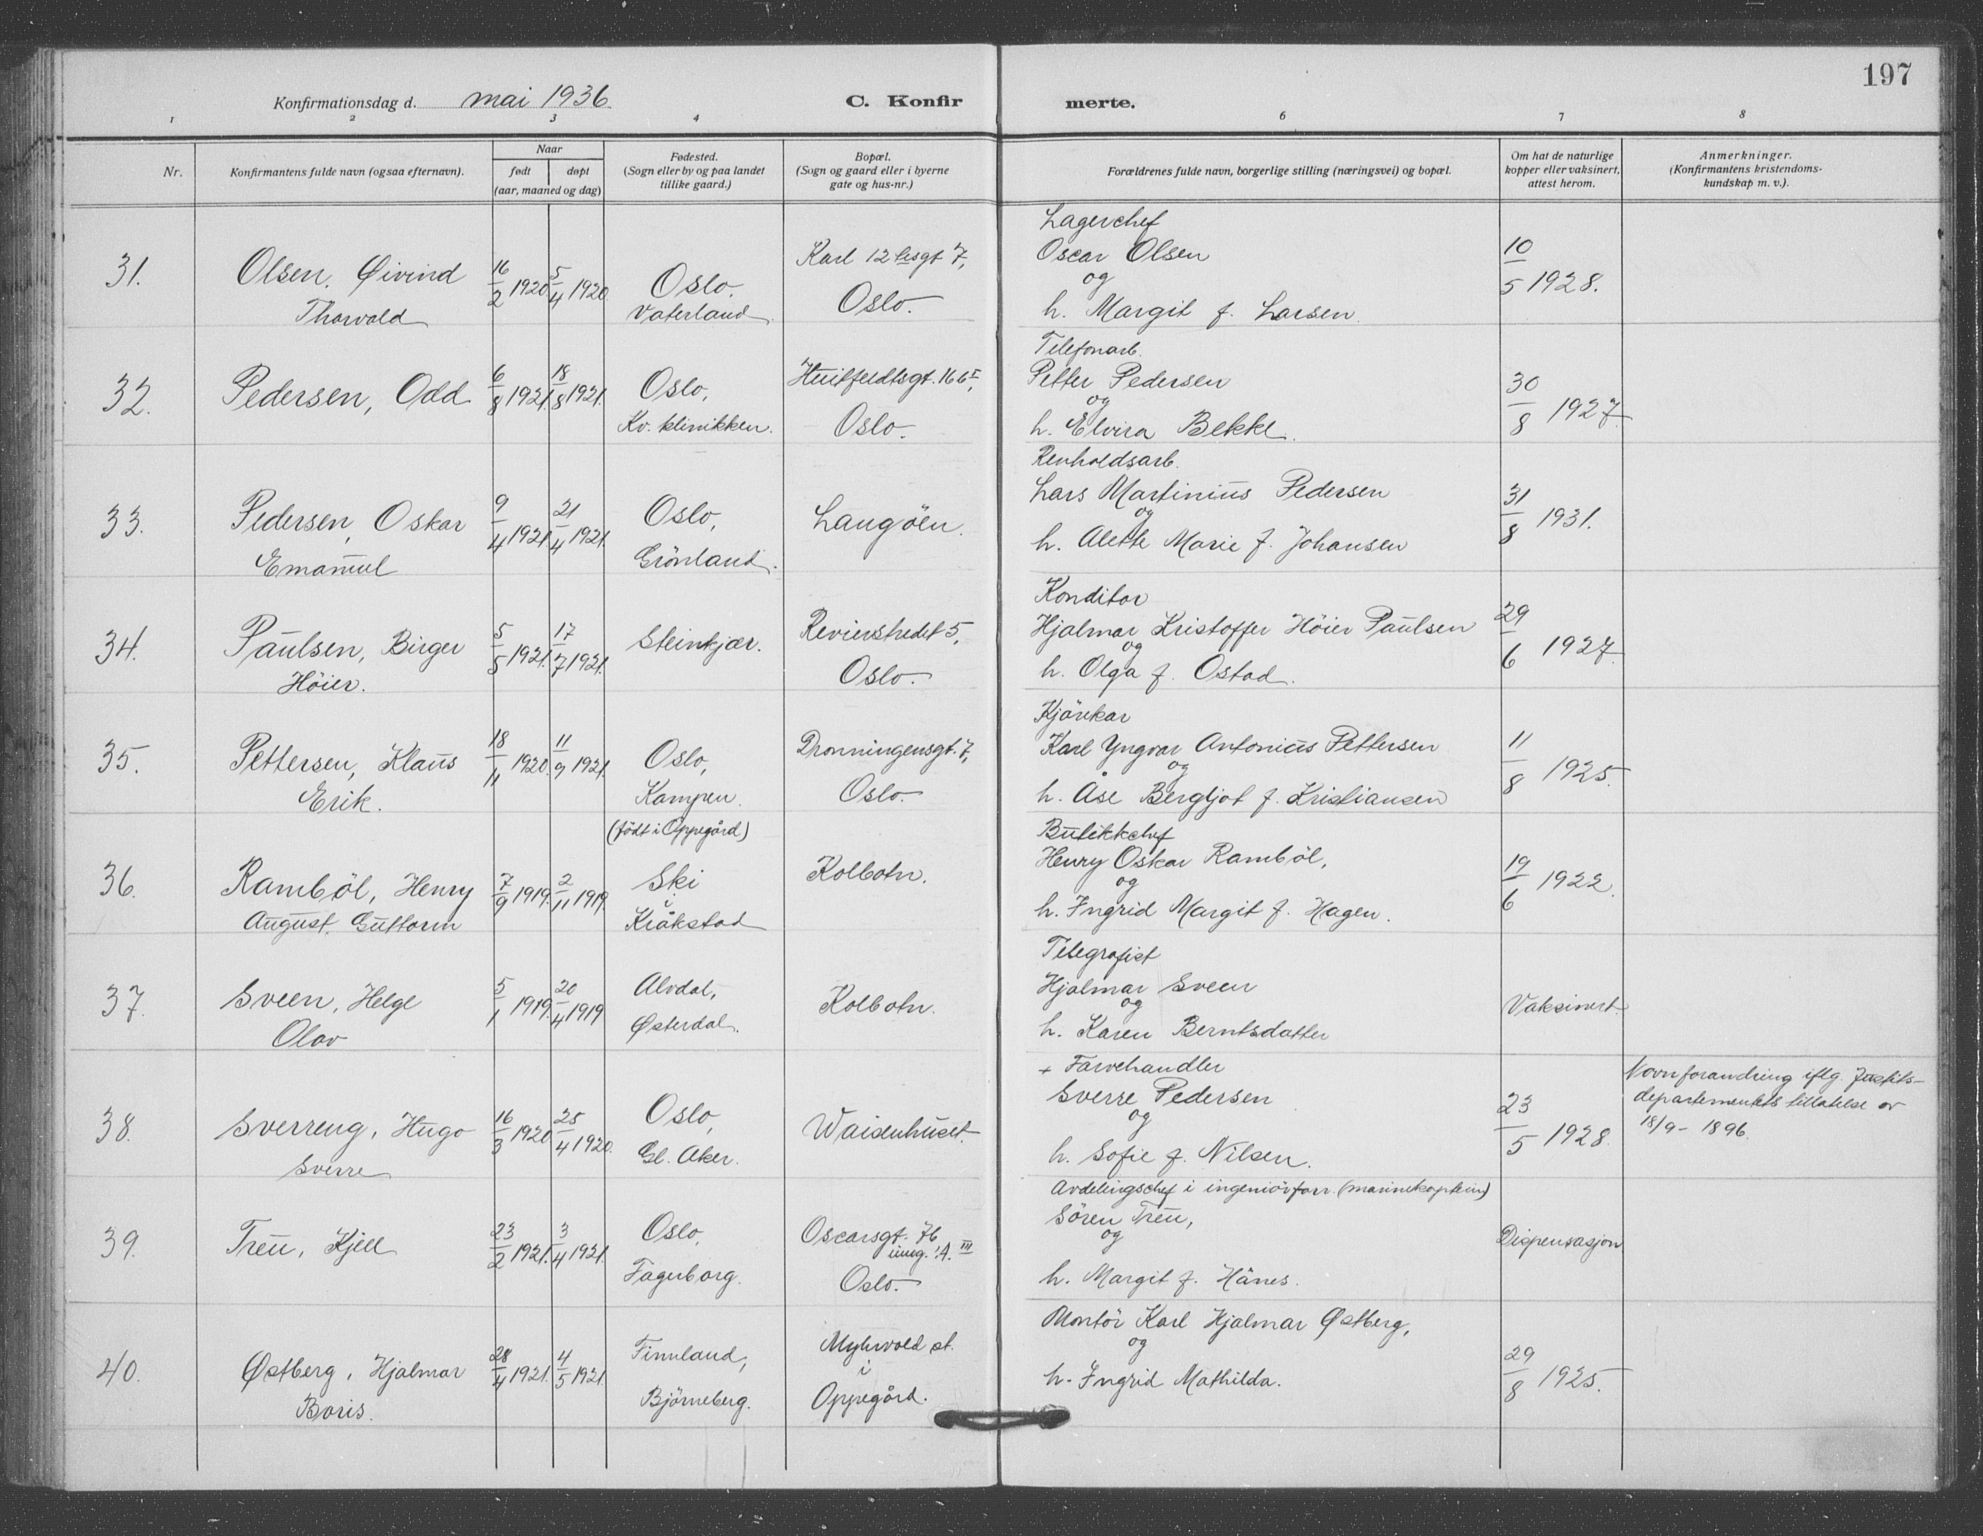 197
Konfirmationsdag d. mai 1936. C. Konfir merte.
1 2 3 4 6 7 8
Nr.
Konfirmantens fulde navn (ogsaa efternavn).
Naar
født døpt
(aar, maaned og dag)
Fødested.
(Sogn eller by og paa landet
tillike gaard.)
Bopæl.
(Sogn og gaard eller i byerne
gate og hus-nr.)
Forældrenes fulde navn, borgerlige stilling (næringsvei) og bopæl.
Om hat de naturlige
kopper eller vaksinert,
attest herom.
Anmerkninger.
(Konfirmantens kristendoms-
kundskap m. v.).
31.
Olsen, Øivind
Thorvald
16/2 1920
5/4 1920
Oslo.
Vaterland
Karl 12 tesgt 7,
Oslo.
Lagerchef
Oscar Olsen
og
h. Margit f. Larsen
10/5 1928.
32.
Pedersen, Odd
6/8 1921.
18/8 1921.
Oslo,
Kv. klinikken.
Huitfeldtsgt. 16 6 I,
Oslo.
Telefonarb.
Petter Pedersen
og
h. Elvira Bekke.
30/8 1927.
33.
Pedersen, Oskar
Emanuel
9/4 1921
21/4 1921.
Oslo,
Grönland.
Langöen.
Renholdsarb.
Lars Martinius Pedersen
og
h. Alette Marie f. Johansen
31/8 1931.
34.
Paulsen, Birger
Höier.
5/5 1921.
17/7 1921.
Steinkjær.
Revierstredet 5,
Oslo.
Konditor
Hjalmar Kristoffer Höier Paulsen
og
h. Olga f. Ostad.
29/6 1927.
35.
Pettersen, Klaus
Erik.
18/11 1920.
11/9 1921.
Oslo,
Kampen.
Dronningensgt. 7,
Oslo.
Kjörekar
Karl Yngvar Antonius Pettersen
og
h. Åse Bergljot f. Kristiansen
11/8 1925.
36.
Ramböl, Henry
August Guttorm
7/9 1919.
2/11 1919.
(födt i Oppegård)
Ski
i
Kråkstad
Kolbotn.
Butikkchef
Henry Oskar Ramböl,
og
h. Ingrid Margit f. Hagen.
19/6 1922.
37.
Sveen, Helge
Olav
5/1 1919.
20/4 1919
Alvdal,
Østerdal.
Kolbotn.
Telegrafist
Hjalmar Sveen
og
h. Karen Berntsdatter
Vaksinert.
38.
Sverreng, Hugo
Sverre
16/3 1920
25/4 1920.
Oslo,
Gl. Aker.
Waisenhuset.
+ Farvehandler
Sverre Pedersen
og
h. Sofie f. Nilsen.
23/5 1928.
Navnforandring iflg. Justits-
departementets tillatelse av
18/9 - 1896.
39.
Treu, Kjell
23/2 1921.
3/4 1921.
Oslo,
Fagerborg.
Oscarsgt. 76
inng. A. III
Oslo.
Avdelingschef i ingeniörforr. (marinekaptein)
Sören Treu,
og
h. Margit f. Hånes.
Dispensasjon
40.
Østberg, Hjalmar
Boris.
28/4 1921.
4/5 1921.
Finnland,
Björneberg.
Myhrvold st.
i
Oppegård.
Montör Karl Hjalmar Østberg,
og
h. Ingrid Mathilda.
29/8 1925.